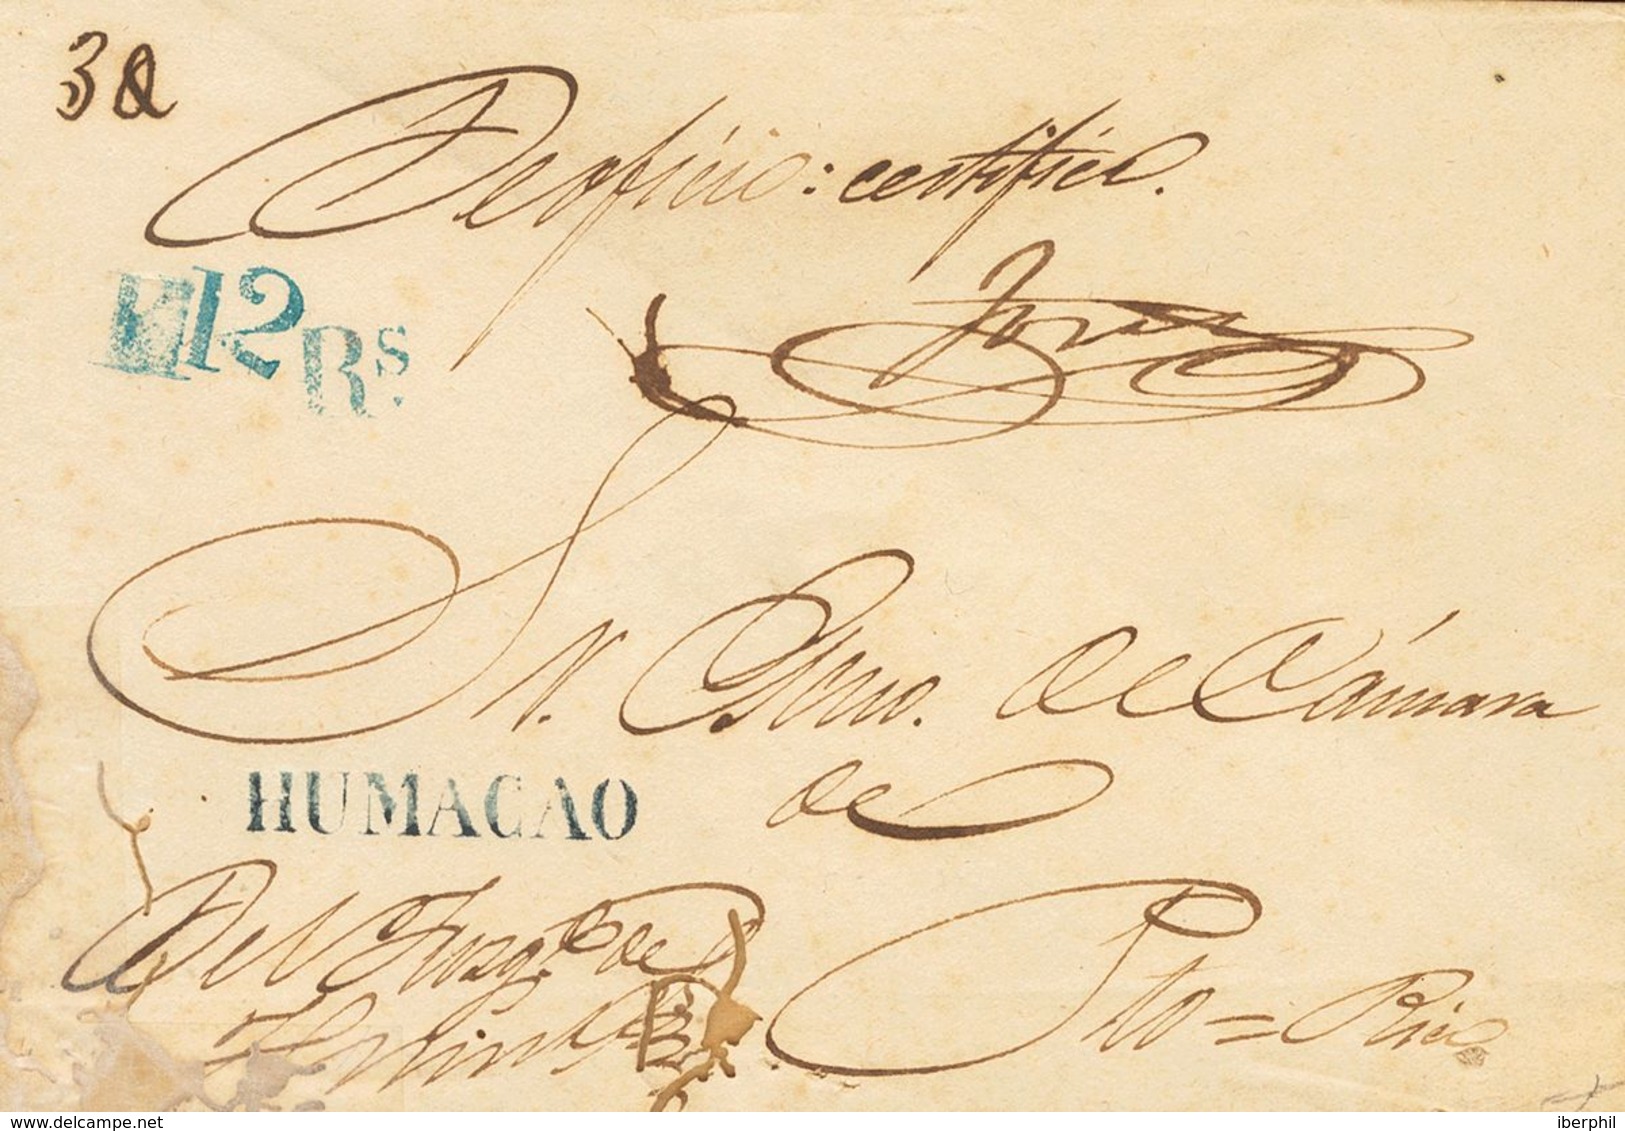 De oficio: certific.
12 Rs.
Sr. Esno. de Cámara
de
HUMACAO
Del Juzgdo. de
Pto = Rico
delcampe.net
iberphil